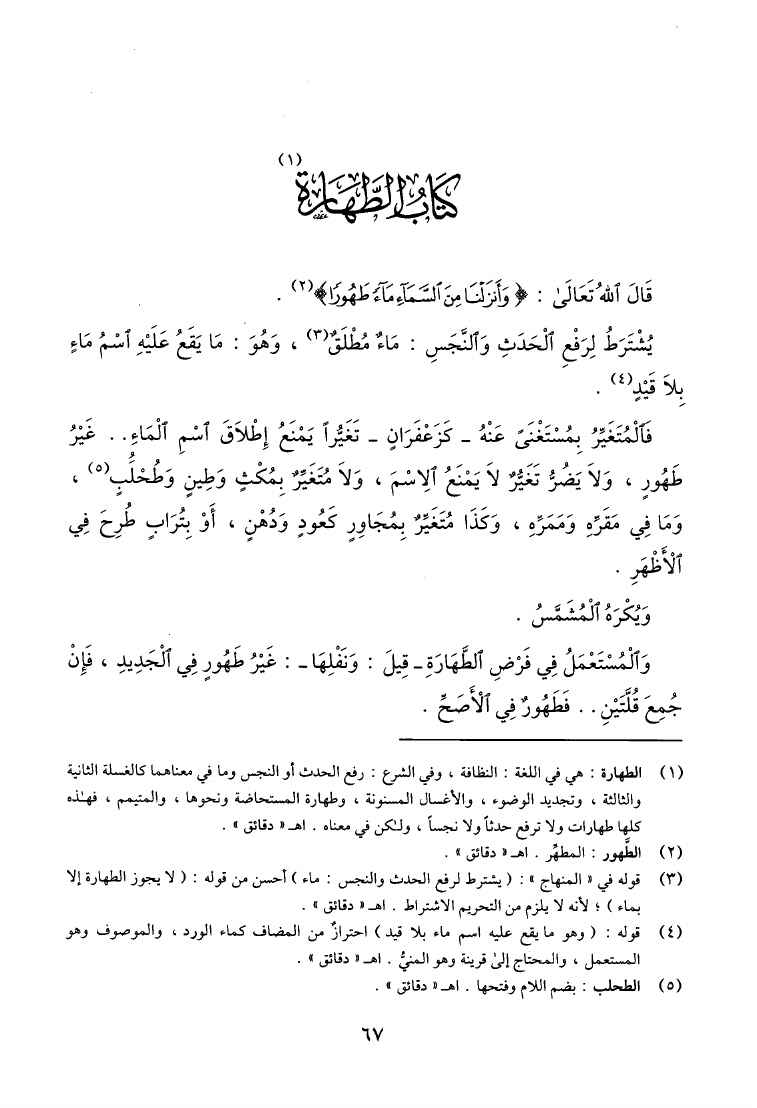 (١)
كِتَابُ الطَّهَارَةِ
قَالَ ٱللهُ تَعَالَىٰ : ﴿ وَأَنزَلْنَا مِنَ ٱلسَّمَآءِ مَآءً طَهُورًا ﴾(٢) .
يُشْتَرَطُ لِرَفْعِ ٱلْحَدَثِ وَٱلنَّجَسِ : مَاءٌ مُطْلَقٌ(٣) ، وَهُوَ : مَا يَقَعُ عَلَيْهِ ٱسْمُ مَاءٍ
بِلاَ قَيْدٍ(٤) .
فَٱلْمُتَغَيِّرُ بِمُسْتَغْنىً عَنْهُ - كَزَعْفَرَانٍ - تَغَيُّراً يَمْنَعُ إِطْلاَقَ ٱسْمِ ٱلْمَاءِ . . غَيْرُ
طَهُورٍ ، وَلاَ يَضُرُّ تَغَيُّرٌ لاَ يَمْنَعُ ٱلِاسْمَ ، وَلاَ مُتَغَيِّرٌ بِمُكْثٍ وَطِينٍ وَطُحْلُبٍ(٥) ،
وَمَا فِي مَقَرِّهِ وَمَمَرِّهِ ، وَكَذَا مُتَغَيِّرٌ بِمُجَاوِرٍ كَعُودٍ وَدُهْنٍ ، أَوْ بِتُرَابٍ طُرِحَ فِي
ٱلْأَظْهَرِ .
وَيُكْرَهُ ٱلْمُشَمَّسُ .
وَٱلْمُسْتَعْمَلُ فِي فَرْضِ ٱلطَّهَارَةِ - قِيلَ : وَنَفْلِهَا - : غَيْرُ طَهُورٍ فِي ٱلْجَدِيدِ ، فَإِنْ
جُمِعَ قُلَّتَيْنِ . . فَطَهُورٌ فِي ٱلْأَصَحِّ .
(١) الطهارة : هي في اللغة : النظافة ، وفي الشرع : رفع الحدث أو النجس وما في معناهما كالغسلة الثانية
والثالثة ، وتجديد الوضوء ، والأغسال المسنونة ، وطهارة المستحاضة ونحوها ، والمتيمم ، فهـٰذه
كلها طهارات ولا ترفع حدثاً ولا نجساً ، ولـٰكن في معناه . اهـ « دقائق » .
(٢) الطَّهور : المطهِّر . اهـ « دقائق » .
(٣) قوله في « المنهاج » : ( يشترط لرفع الحدث والنجس : ماء ) أحسن من قوله : ( لا يجوز الطهارة إلا
بماء ) ؛ لأنه لا يلزم من التحريم الاشتراط . اهـ « دقائق » .
(٤) قوله : ( وهو ما يقع عليه اسم ماء بلا قيد ) احترازٌ من المضاف كماء الورد ، والموصوف وهو
المستعمل ، والمحتاج إلىٰ قرينة وهو المنيُّ . اهـ « دقائق » .
(٥) الطحلب : بضم اللام وفتحها . اهـ « دقائق » .
٦٧